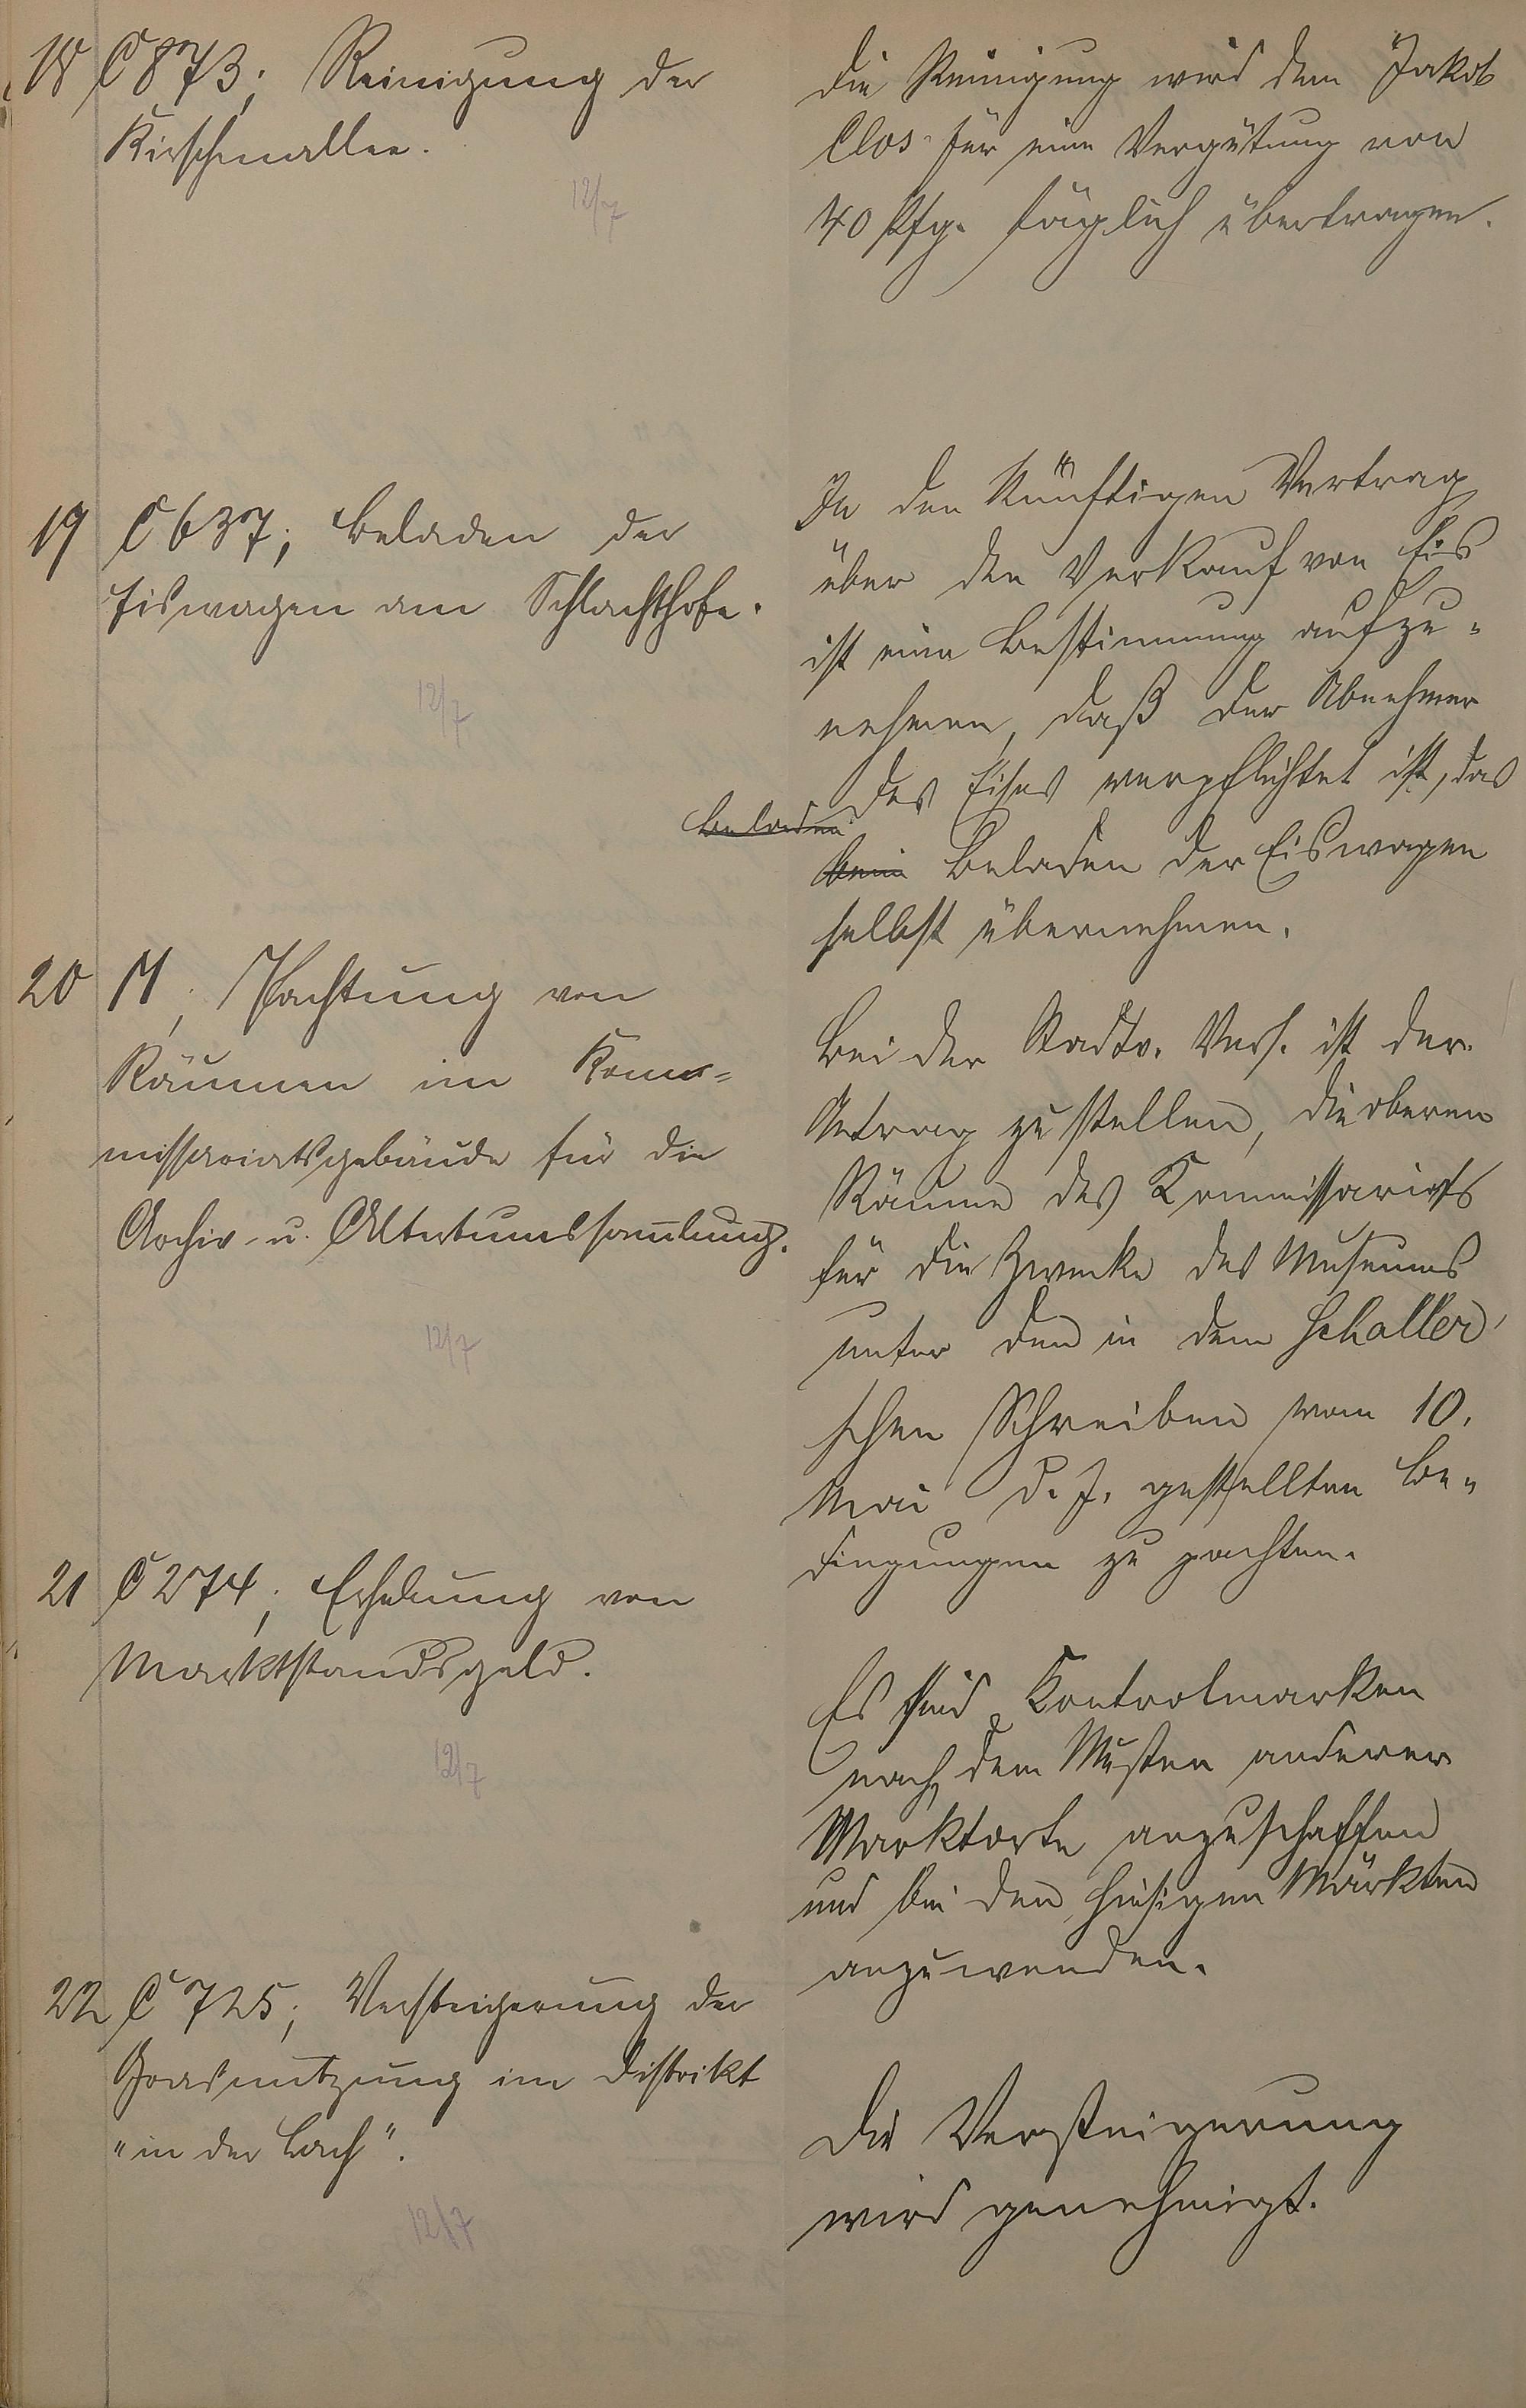 18 C 873; Reinigung der
Kirschenallee.
12/7
Die Reinigung wird dem Jakob
Clos für eine Vergütung von
40 Pfg. täglich übertragen.
19 C 637; Beladen der
Eiswagen am Schlachthofe.
12/7
In den künftigen Vertrag
über den Verkauf von Eis
ist eine Bestimmung aufzu-
nehmen, daß der Abnehmer
des Eises verpflichtet ist, das
beladen
beim Beladen der Eiswagen
selbst übernehmen.
20 M; Pachtung von
Räumen im Kom-
missariatsgebäude für die
Archiv- u. Altertumssamlung.
12/7
Bei der Stadtv. Vers. ist der
Antrag zu stellen, die oberen
Räume des Kommissariats
für die Zwecke des Museums
unter den in dem Schaller'
schen Schreiben vom 10.
Mai d. J. gestellten Be-
dingungen zu pachten.
21 C 274; Erhebung von
Marktstandsgeld.
12/7
Es sind Kontrolmarken
nach dem Muster anderer
Marktorte anzuschaffen
und bei den hiesigen Märkten
anzuwenden.
22 C 725; Versteigerung der
Grasnutzung im Distrikt
"in der Lach".
12/7
Die Versteigerung
wird genehmigt.